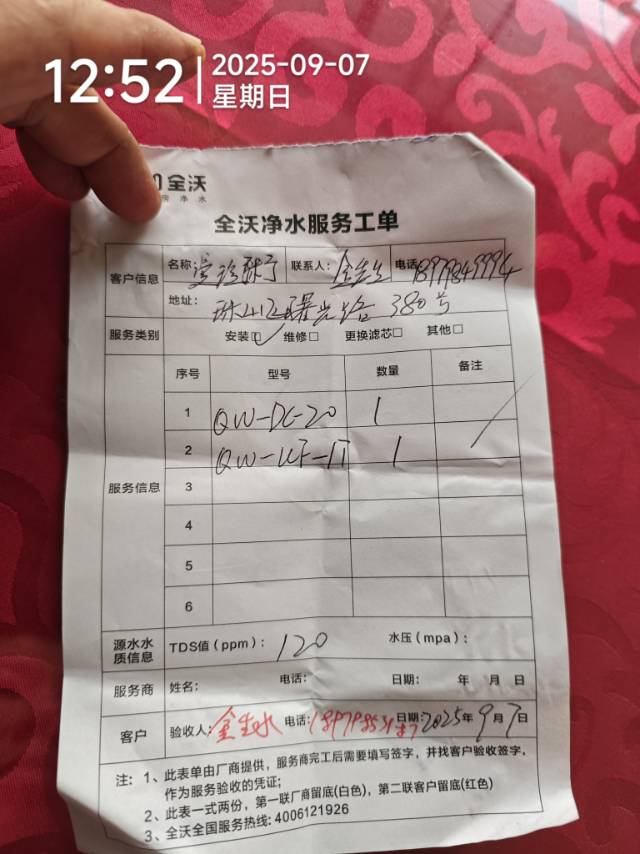 12:52
2025-09-07
星期日
全沃
净水
全沃净水服务工单
客户信息 名称 联系人: 金 电话
地址: 珠山区曙光路 380号
服务类别 安装☑ 维修□ 更换滤芯□ 其他□
服务信息 序号 型号 数量 备注
1 QW-DC-20 1
2 1
3
4
5
6
源水水质信息 TDS值(ppm): 120 水压(mpa):
服务商 姓名: 电话: 日期: 年 月 日
客户 验收人: 金 电话: 日期: 2025年 9月 7日
注: 1、此表单由厂商提供, 服务商完工后需要填写签字, 并找客户验收签字,
作为服务验收的凭证;
2、此表一式两份, 第一联厂商留底(白色), 第二联客户留底(红色)
3、全沃全国服务热线: 4006121926